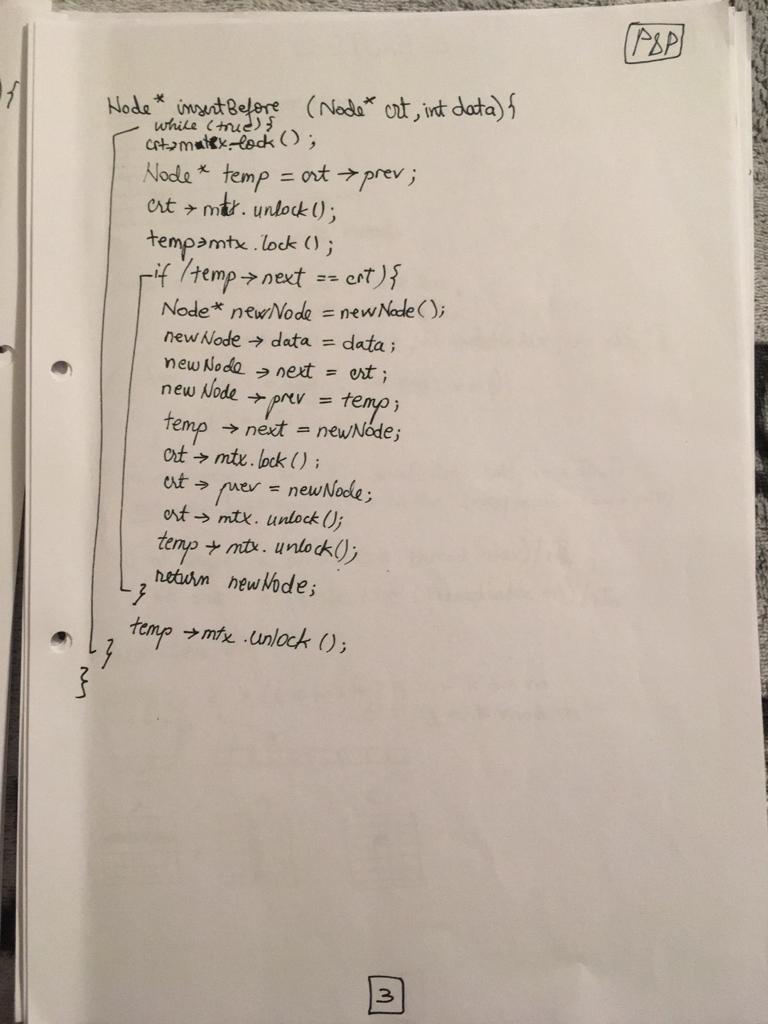 PDP
Node* insertBefore (Node* crt, int data){
while (true) {
crt->mutex.lock();
Node* temp = crt -> prev;
crt -> mtx. unlock();
temp->mtx. lock ();
if (temp -> next == crt) {
Node* newNode = newNode();
newNode -> data = data;
newNode -> next = crt;
newNode -> prev = temp;
temp -> next = newNode;
crt -> mtx. lock();
crt -> prev = newNode;
crt -> mtx. unlock();
temp -> mtx. unlock();
return newNode;
}
temp -> mtx . unlock ();
}
}
3